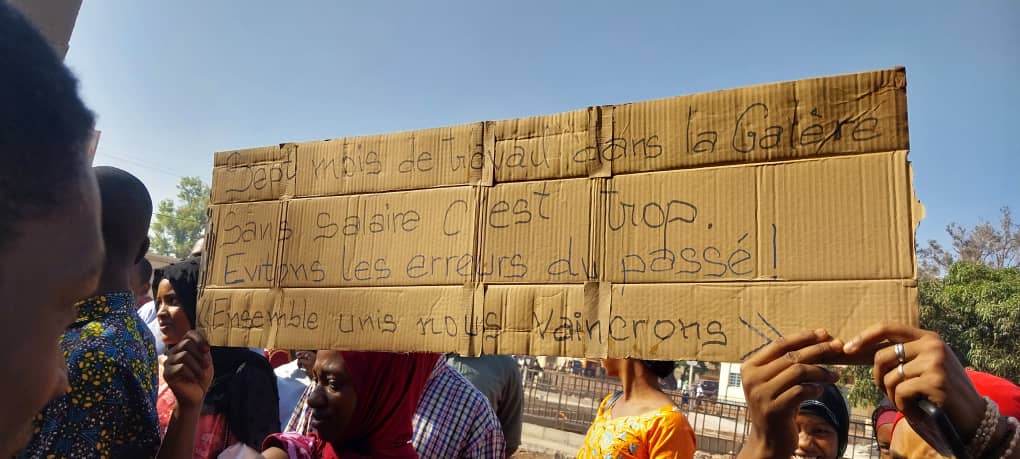 Sept mois de travail dans la Galère
Sans salaire C'est Trop.
Evitons les erreurs du passé!
«Ensemble unis nous Vaincrons»